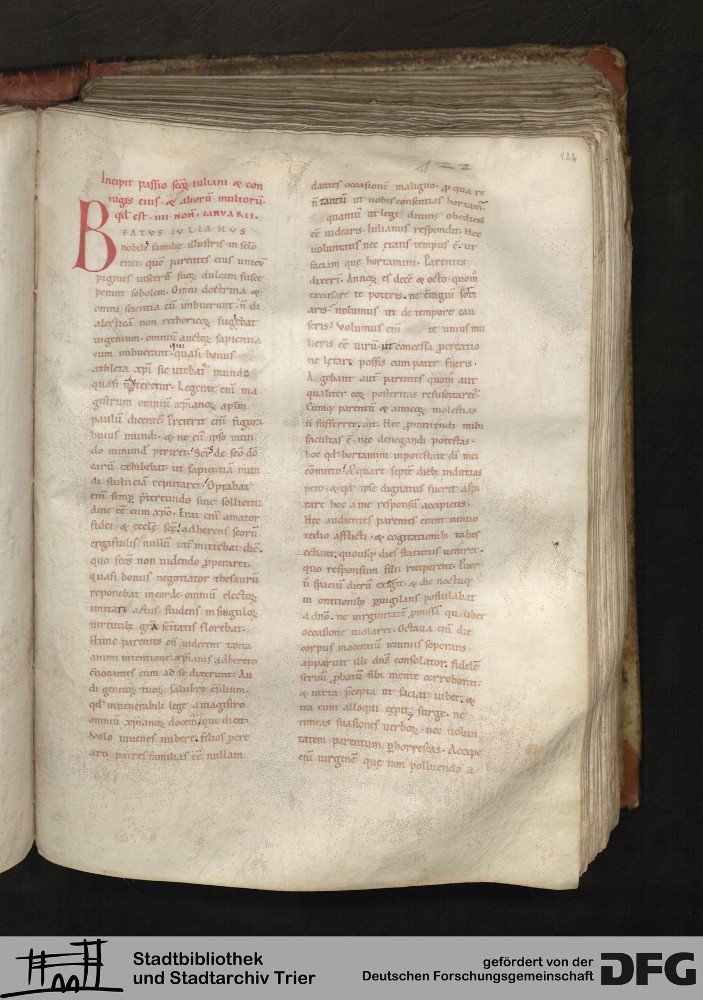 122
124
Incipit passio scī iuliani & con
iugis eius · & alioru multoru
qd est · IIII · NON · IANVARII ·
BEATVS IVLIANUS
nobili familia illustris in sclo
enit · que parentes eius unicū
pignus uisceru suoꝝ dulcem susce
perunt sobolem. Omni doctrina &
omni scientia eū imbuerunt · n̄ di
alecticā non rethoricoꝝ fugiebat
ingenium · omniū auctoꝝ sapientia
eum imbuerant · quasi bonus
athleta xp̄i sic utebat mundo
quasi n̄ uteretur. Legerat enī ma
gistrum omniū xp̄ianoꝝ aplm̄
paulū dicentē. Preterit enī figura
huius mundi · & ne cū ipso mun
do
periret
cariū cohibebat ut sapientiā mun
di stulticiā reputaret. Optabat
enī semp
fidei & eccle
ergastulis nullū
mittebat diē.
quo scōs non uidendo pperaret.
quasi bonus negotiator thesaurū
reponebat in corde omniū electoꝝ
imitari actus studens in singuloꝝ
uirtutib; gr̄a sc̄itatis florebat.
Hunc parentes cū uiderent tanta
animi intentione xp̄ianis adherere
euocantes eum ad se dixerunt. Au
di genitoꝝ tuoꝝ salubre consilium.
qd
lege a magistro
omniū xp̄ianoꝝ docem̄ · qui dicit.
Volo iuuenes nubere · filios pcre
are · patres familias eē nullam
dantes occasionē maligno · p qua re
n̄ tantū ut nobis consentias hortam̄
quantū ut legi diuine obediens
eē indicaris. Iulianus respondit. Nec
uoluntatis nec etatis tempus ē · ut
faciam que hortamini. Parentes
dixer. Annoꝝ es decē & octo · quom̄
excusare te poteris · ne coniugii soci
aris · nolumus ut de tempore cau
seris. Volumus enī te unius mu
lieris eē uirū · ut concessa procreatio
ne letari possis cum pater fueris.
Agebant aut parentes quom̄ aut
qualiter eoꝝ posteritas resuscitaret.
Cumq; parentū & amicoꝝ molestias
n̄ sufferret · ait. Nec pmittendi mihi
facultas ē · nec denegandi potestas ·
hoc qd hortamini in potestate dī mei
Quare septē dieb; inducias
peto · & qd ipse dignatus fuerit aspi
rare hoc a me responsū accipietis.
Hec audientes parentes erant nimio
tedio afflicti · & cogitationib; tabes
cebant · quousq; dies statutus ueniret ·
quo responsum filii reciperent. Puer
ū spaciū dierū exegit · & die noctuq;
in orationib; puigilans postulabat
a dn̄o · ne uirginitatē pmissā qualibet
occasione uiolaret. Octaua enī die
corpus maceratū ieiuniis soporans ·
apparuit illi dn̄s consolator · fidelē
seruū pbatū sibi mente corroborat ·
& iuxta pcepta ut faciat iubet · &
ita cum alloqui cepit · Surge · ne
timeas suasiones uerboꝝ · nec uolun
tatem parentum phorrescas · Accipe
enī uirginē que non polluendo a
Stadtbibliothek
und Stadtarchiv Trier
gefördert von der
Deutschen Forschungsgemeinschaft
DFG